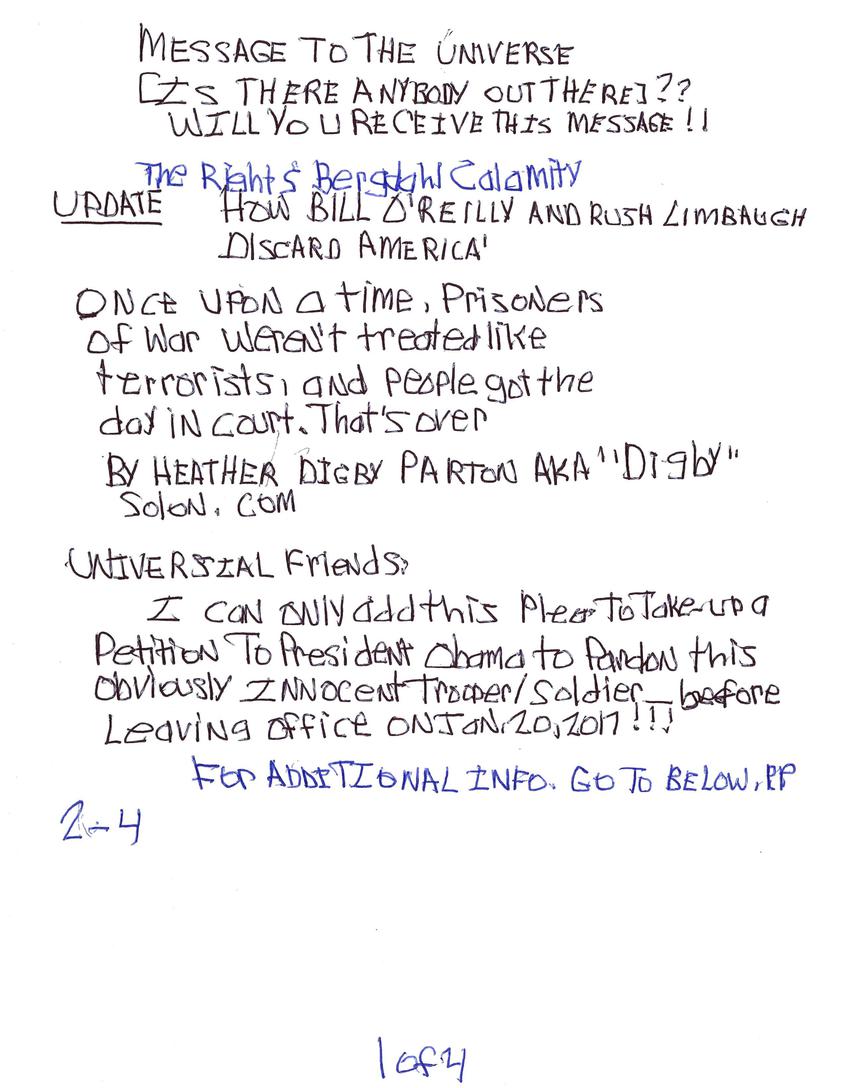 MESSAGE TO THE UNIVERSE
[IS THERE ANYBODY OUT THERE]??
WILL YOU RECEIVE THIS MESSAGE!!
The Right's Bergdahl Calamity
UPDATE HOW BILL O'REILLY AND RUSH LIMBAUGH
DISCARD AMERICA'
ONCE UPON a time, Prisoners
of War weren't treated like
terrorists, and people got the
day in court. That's over
BY HEATHER DIGBY PARTON AKA "Digby"
Solon. COM
UNIVERSIAL Friends,
I can only add this Plea To Take-up a
Petition To President Obama to Pardon this
obviously INNOCENT Trooper/Soldier_before
Leaving office ON JAN. 20, 2017!!!
FOR ADDITIONAL INFO. GO TO BELOW, PP
2-4
1 of 4